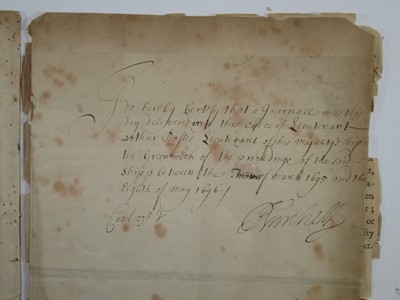 I do hereby Certify that a Journall was this
day delivered into this office of Lieutenant
Arthur Lieutenant of his majestys ship
the Greenwich of the proceedings of the said
shipp between the first of march 1695 and the
Eighth of may 1696